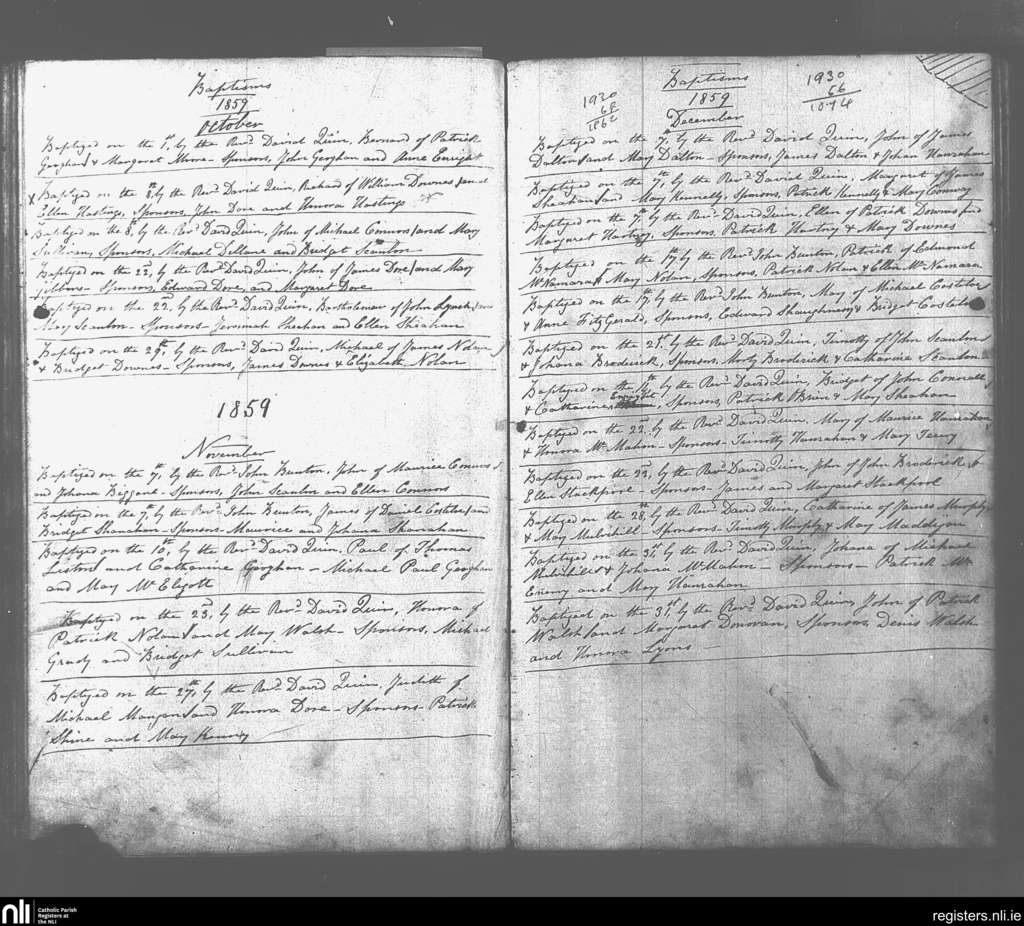 Baptisms
1859
October
Baptyzed on the 1st, by the Revd David Quin, Bernard of Patrick
Geoghan & Margaret Shine - Sponsors, John Geoghan and Anne Enright
x Baptyzed on the 8th, by the Revd David Quin, Richard of William Downes and
Ellen Hastings, Sponsors, John Dore and Honora Hastings
Baptyzed on the 8th, by the Revd David Quin, John of Michael Connors and Mary
Sullivan, Sponsors, Michael Dellane and Bridget Scanlon
Baptyzed on the 22d, by the Revd David Quin, John of James Dore and Mary
Gibbons - Sponsors, Edward Dore, and Margaret Dore
Baptyzed on the 22d, by the Revd David Quin, Bartholomew of John Lynch, and
Mary Scanlon - Sponsors Jeremiah Sheehan and Ellen Sheahan
Baptyzed on the 29th, by the Revd David Quin, Michael of James Nolan
& Bridget Downes - Sponsors, James Downes & Elizabeth Nolan
1859
November
Baptized on the 7th, by the Revd John Bunton, John of Maurice Connors
and Johana Beggane - Sponsors, John Scanlon and Ellen Connors
Baptyzed on the 7th, by the Revd John Bunton, James of Daniel Costeloe and
Bridget Shanahan - Sponsors - Maurice and Johana Shanahan
Baptyzed on the 10th, by the Revd David Quin, Paul of Thomas
Liston and Catharine Geoghan - Michael Paul Geoghan
and May McElgott
Baptyzed on the 23d, by the Revd David Quin, Honora of
Patrick Nolan and May Walsh - Sponsors, Michael
Grady and Bridget Sullivan
Baptyzed on the 27th, by the Revd David Quin, Judith of
Michael Mangan and Honora Dore - Sponsors - Patrick
Shine and May Kenny
Baptisms
1859
December
1930
68
1862
1930
56
1874
Baptyzed on the 7th, by the Revd David Quin, John of James
Dalton and May Dalton - Sponsors, James Dalton & Johan Hanrahan
Baptyzed on the 7th, by the Revd David Quin, Margaret of James
Sheahan and May Kennelly, Sponsors, Patrick Kennelly & May Conway
Baptyzed on the by the Revd David Quin, Ellen of Patrick Downes and
Margaret Hartny, Sponsors, Patrick Hartny & Mary Downes
Baptyzed on the 17th by the Revd John Bunton, Patrick of Edmond
McNamara & May Nolan, Sponsors, Patrick Nolan & Ellen McNamara
Baptyzed on the 17th, by the Revd John Bunton, May of Michael Costeloe
& Anne FitzGerald, Sponsors, Edward Shaughnessy & Bridget Costeloe
Baptyzed on the 21st, by the Revd David Quin, Timothy of John Scanlon
& Johana Broderick, Sponsors, Morty Broderick & Catharine Scanlon
Baptyzed on the by the Revd David Quin, Bridget of John Connell,
& Catharine Enright, Sponsors, Patrick OBrien & May Sheahan
Baptyzed on the 22d, by the Revd David Quin, May of Maurice Hanrahan
& Honora McMahon - Sponsors - Timothy Hanrahan & Mary Teery
Baptyzed on the 23d, by the Revd David Quin, John of John Broderick &
Ellen Stackpool - Sponsors - James and Margaret Stackpool
Baptyzed on the 28th, by the Revd David Quin, Catharine of James Murphy
& May Mulvihill - Sponsors - Timothy Murphy & May Maddigan
Baptyzed on the 31st, by the Revd David Quin, Johana of Michael
Mulvihill & Johana McMahon - Sponsors - Patrick Mc
Eniry and May Hanrahan
Baptyzed on the 31st, by the Revd David Quin, John of Patrick
Walsh and Margaret Donovan, Sponsors, Denis Walsh
and Honora Lyons
nli
Catholic Parish
Registers at
the NLI
registers.nli.ie